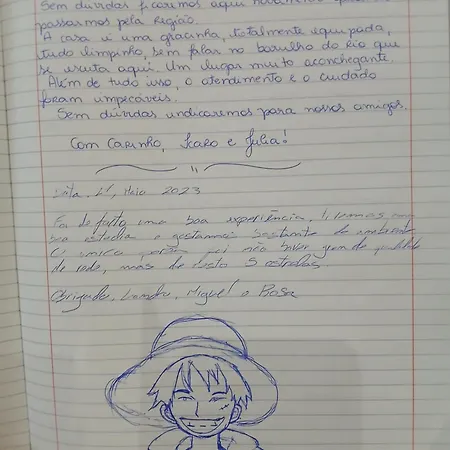 Sem dúvidas ficaremos aqui novamente
passarmos pela região.
A casa é uma gracinha, totalmente equipada,
tudo limpinho, sem falar no barulho do rio que
se escuta aqui. Um lugar muito aconchegante.
Além de tudo isso, o atendimento e o cuidado
foram impecáveis.
Sem dúvidas indicaremos para nossos amigos.
Com Carinho, Icaro e Julia!
Data, Maio 2023
Foi de fato uma boa experiência,
boa estadia e gostamos bastante do ambiente
O único porém foi não haver
de rede, mas de resto 5 estrelas.
Obrigado, Miguel e Rosa